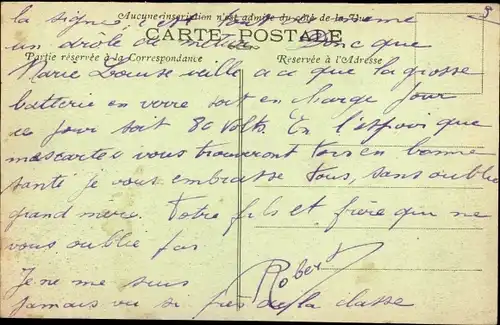 la signes est
Aucune inscription n'est admise du côté de la Vue
CARTE POSTALE
un drôle de métier Donc que
Partie réservée à la Correspondance
Réservée à l'Adresse
Marie Louise veille a ce que la grosse
batterie en verre soit en charge pour
ce jour soit 80 Volts. En l'espoir que
mes cartes vous trouveront tous en bonne
santé je vous embrasse tous, sans oublier
grand mère. Votre fils et frère qui ne
vous oublie pas
Robert
Je ne me suis
jamais vu si près de la classe